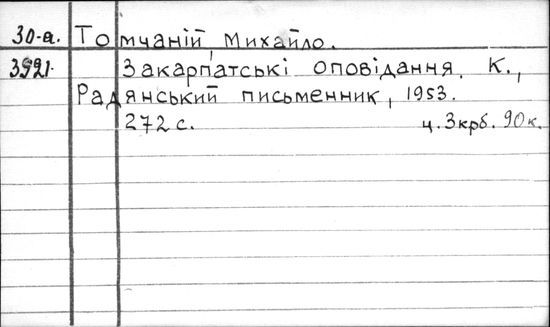 30-а. Томчаній, Михайло.
3921. Закарпатські оповідання. К.,
Радянський письменник, 1953.
272 с. ц. 3 крб. 90 к.